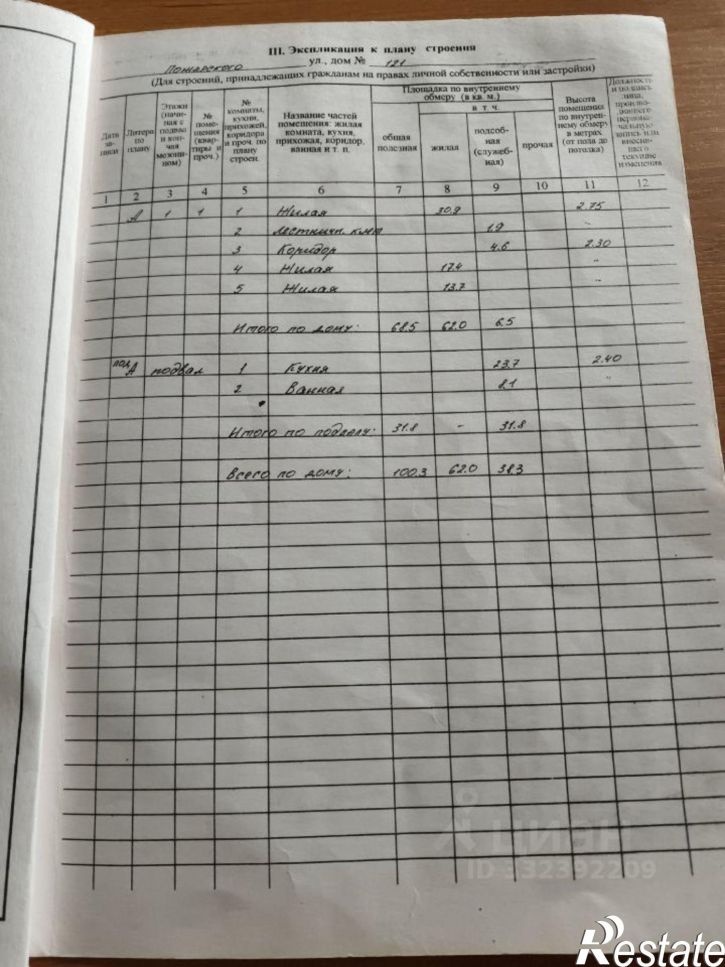 III. Экспликация к плану строения
Пожарского ул., дом № 121
(Для строений, принадлежащих гражданам на правах личной собственности или застройки)
Дата записи
Литера по плану
Этажи (начиная с подвала и кончая мезонином)
№ помещения (квартиры и проч.)
№ комнаты, кухни, прихожей, коридора и проч. по плану строен.
Название частей помещения: жилая комната, кухня, прихожая, коридор, ванная и т. п.
Площадка по внутреннему обмеру (в кв. м.)
общая полезная
в т. ч.
жилая
подсобная (служебная)
прочая
Высота помещения по внутреннему обмеру в метрах (от пола до потолка)
1 2 3 4 5 6 7 8 9 10 11 12
А 1 1 1 Жилая 30.9 2.75
2 1.9 "
3 Коридор 4.6 2.30
4 Жилая 17.4 "
5 Жилая 13.7 "
Итого по дому: 68.5 62.0 6.5
под А подвал 1 Кухня 23.7 2.40
2 Ванная 8.1 "
Итого по подвалу: 31.8 - 31.8
Всего по дому: 100.3 62.0 38.3
ЦИАН
ID 332392209
Restate